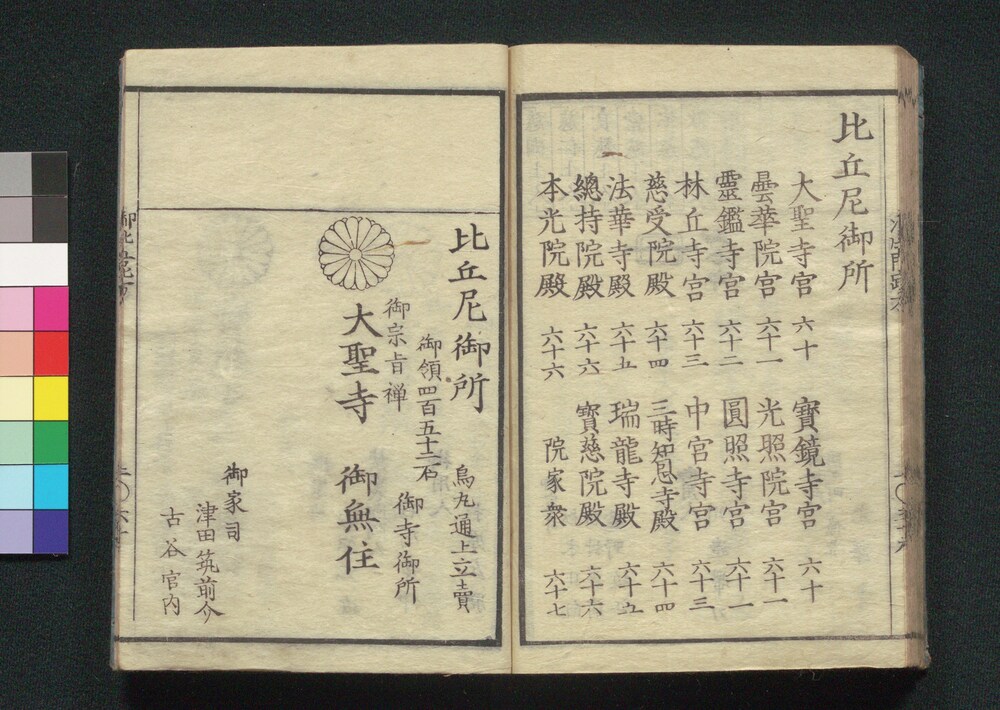 比丘尼御所
大聖寺宮 六十 寶鏡寺宮 六十
曇華院宮 六十一 光照院宮 六十一
靈鑑寺宮 六十二 圓照寺宮 六十一
林丘寺宮 六十三 中宮寺宮 六十三
慈受院殿 六十四 三時知恩寺殿 六十四
法華寺殿 六十五 瑞龍寺殿 六十五
總持院殿 六十六 寶慈院殿 六十六
本光院殿 六十六 院家衆 六十七
比丘尼御所 烏丸通上立賣
御領四百五十二石 御寺御所
御宗旨禅
大聖寺 御無住
御家司
津田筑前介
古谷官内